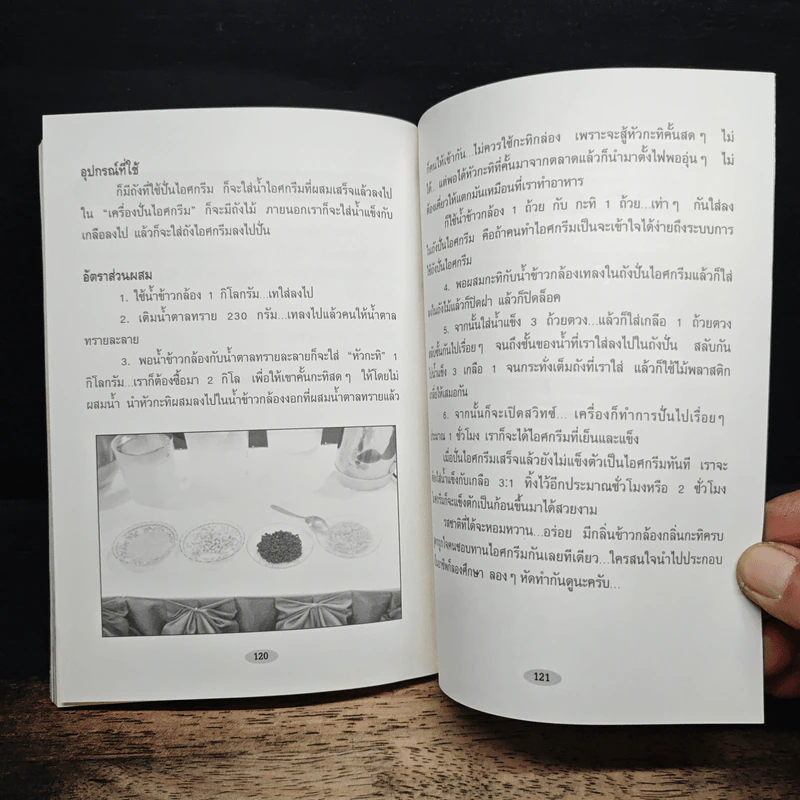 อุปกรณ์ที่ใช้
ก็มีถังที่ใช้ปั่นไอศกรีม ก็จะใส่น้ำไอศกรีมที่ผสมเสร็จแล้วลงไป
ใน "เครื่องปั่นไอศกรีม" ก็จะมีถังไม้ ภายนอกเราก็จะใส่น้ำแข็งกับ
เกลือลงไป แล้วก็จะใส่ถังไอศกรีมลงไปปั่น
อัตราส่วนผสม
1. ใช้น้ำข้าวกล้อง 1 กิโลกรัม...เทใส่ลงไป
2. เติมน้ำตาลทราย 230 กรัม...เทลงไปแล้วคนให้น้ำตาล
ทรายละลาย
3. พอน้ำข้าวกล้องกับน้ำตาลทรายละลายก็จะใส่ "หัวกะทิ" 1
กิโลกรัม...เราก็ต้องซื้อมา 2 กิโล เพื่อให้เขาคั้นกะทิสดๆ ให้โดยไม่
ผสมน้ำ นำหัวกะทิผสมลงไปในน้ำข้าวกล้องงอกที่ผสมน้ำตาลทรายแล้ว
120
ก็คนให้เข้ากัน...ไม่ควรใช้กะทิกล่อง เพราะจะสู้หัวกะทิคั้นสดๆ ไม่
ได้...แต่พอได้หัวกะทิที่คั้นมาจากตลาดแล้วก็นำมาตั้งไฟพออุ่นๆ ไม่
ต้องเคี่ยวให้แตกมันเหมือนที่เราทำอาหาร
ก็ใช้น้ำข้าวกล้อง 1 ถ้วย กับ กะทิ 1 ถ้วย...เท่าๆ กันใส่ลง
ในถังปั่นไอศกรีม คือถ้าคนทำไอศกรีมเป็นจะเข้าใจได้ง่ายถึงระบบการ
ใช้ถังปั่นไอศกรีม
4. พอผสมกะทิกับน้ำข้าวกล้องเทลงในถังปั่นไอศกรีมแล้วก็ใส่
ลงในถังไม้แล้วก็ปิดฝา แล้วก็ปิดล็อค
5. จากนั้นใส่น้ำแข็ง 3 ถ้วยตวง...แล้วก็ใส่เกลือ 1 ถ้วยตวง
สลับชั้นกันไปเรื่อยๆ จนถึงชั้นของน้ำที่เราใส่ลงไปในถังปั่น สลับกัน
ไปน้ำแข็ง 3 เกลือ 1 จนกระทั่งเต็มถังที่เราใส่ แล้วก็ใช้ไม้พลาสติก
เกลี่ยให้เสมอกัน
6. จากนั้นก็จะเปิดสวิทซ์... เครื่องก็ทำการปั่นไปเรื่อยๆ
ประมาณ 1 ชั่วโมง เราก็จะได้ไอศกรีมที่เย็นและแข็ง
เมื่อปั่นไอศกรีมเสร็จแล้วยังไม่แข็งตัวเป็นไอศกรีมทันที เราจะ
น้ำแข็งกับเกลือ 3:1 ทิ้งไว้อีกประมาณชั่วโมงหรือ 2 ชั่วโมง
ก็จะแข็งตักเป็นก้อนขึ้นมาได้สวยงาม
รสชาติที่ได้จะหอมหวาน...อร่อย มีกลิ่นข้าวกล้องกลิ่นกะทิครบ
ถูกใจคนชอบทานไอศกรีมกันเลยทีเดียว...ใครสนใจนำไปประกอบ
อาชีพก็ลองศึกษา ลองๆ หัดทำกันดูนะครับ...
121